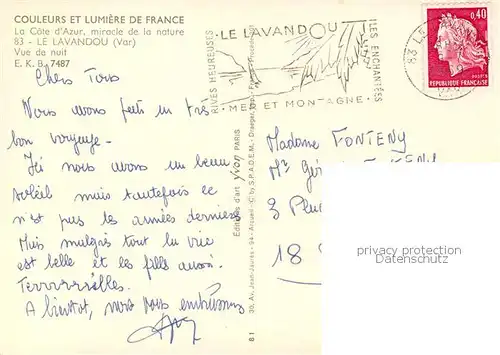 COULEURS ET LUMIÈRE DE FRANCE
La Côte d'Azur, miracle de la nature
83 - LE LAVANDOU (Var)
Vue de nuit
E. K. B. 7487
Chers Tous
Nous avons fait un très
bon voyage.
Ici nous avons un beau
soleil mais toutefois ce
n'est pas les années dernières
Mais malgrés tout la vie
est belle et les filles aussi.
Terrrrrribles.
A bientot, nous vous embrassons
RIVES HEUREUSES
LE LAVANDOU
ILES ENCHANTÉES
MER ET MONTAGNE
0,40
REPUBLIQUE FRANÇAISE
POSTES
Editions d'art yvon PARIS
30, Av. Jean-Jaurès - 94 - Arcueil
B 1
Madame FONTENY
Mr
3
18
privacy protection
ansichtskartenversand.com